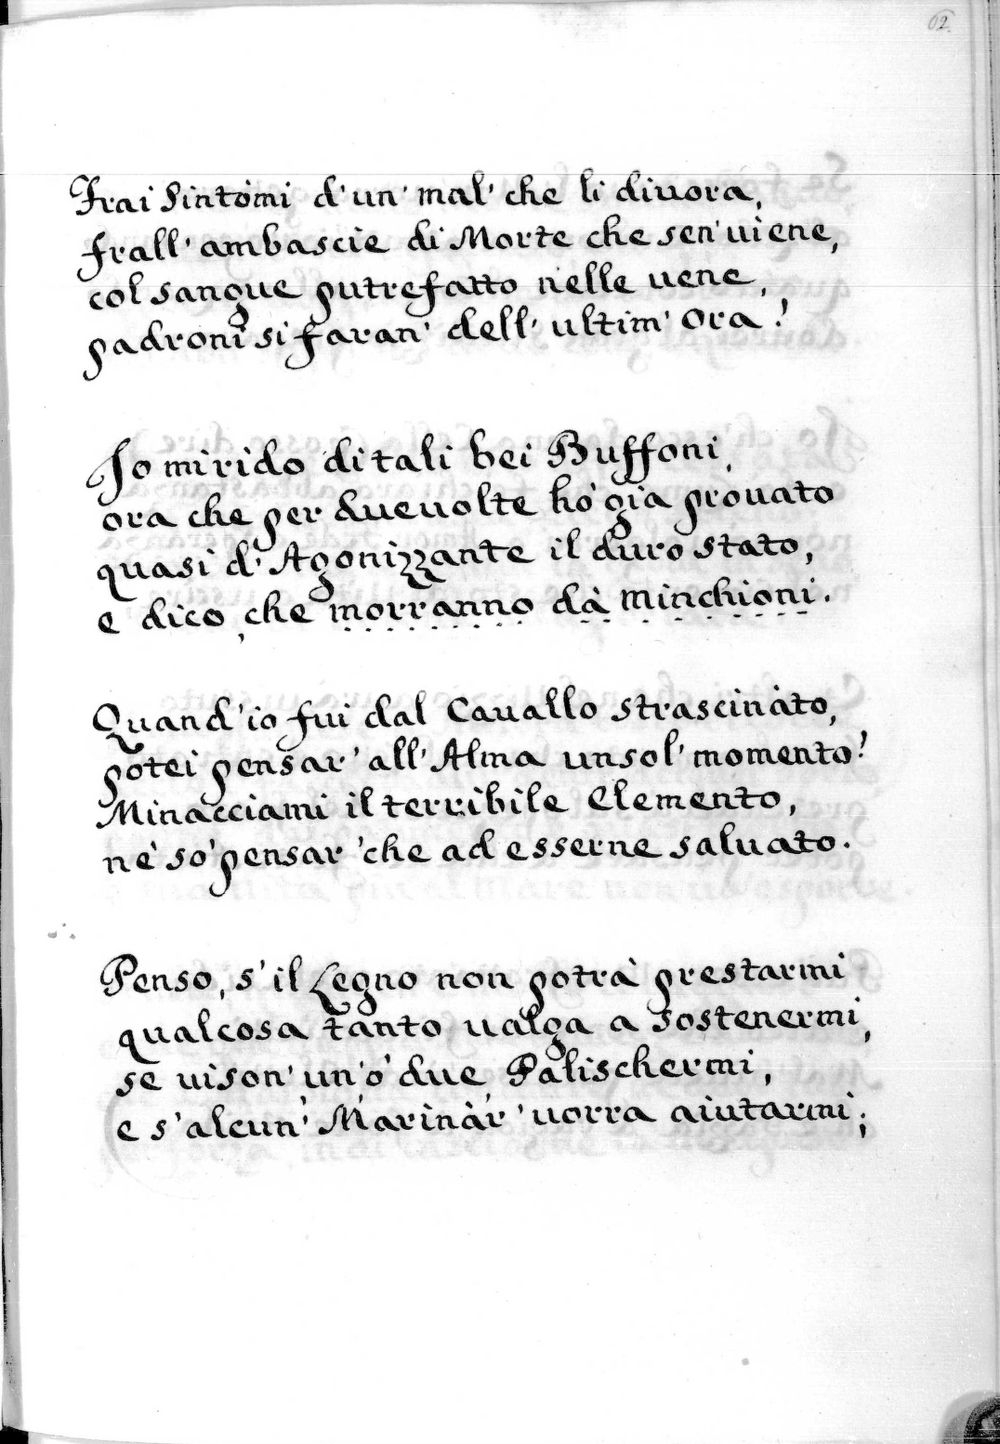 62.
Frai Sintomi d'un' mal' che li diuora,
frall' ambascie di Morte che sen' uiene,
col sangue putrefatto nelle uene,
padroni si faran' dell' ultim' ora!
Io mi rido di tali bei Buffoni,
ora che per due uolte hò già prouato
quasi d'Agonizzante il duro stato,
e dico, che morranno dà minchioni.
Quand'io fui dal Cauallo strascinato,
potei pensar' all' Alma un sol' momento!
Minacciami il terribile Elemento,
nè sò pensar 'che ad esserne saluato.
Penso, s' il Legno non potrà prestarmi
qualcosa tanto ualga a sostenermi,
se ui son' un' ò due Palischermi,
e s' alcun' Marinàr' uorra aiutarmi;